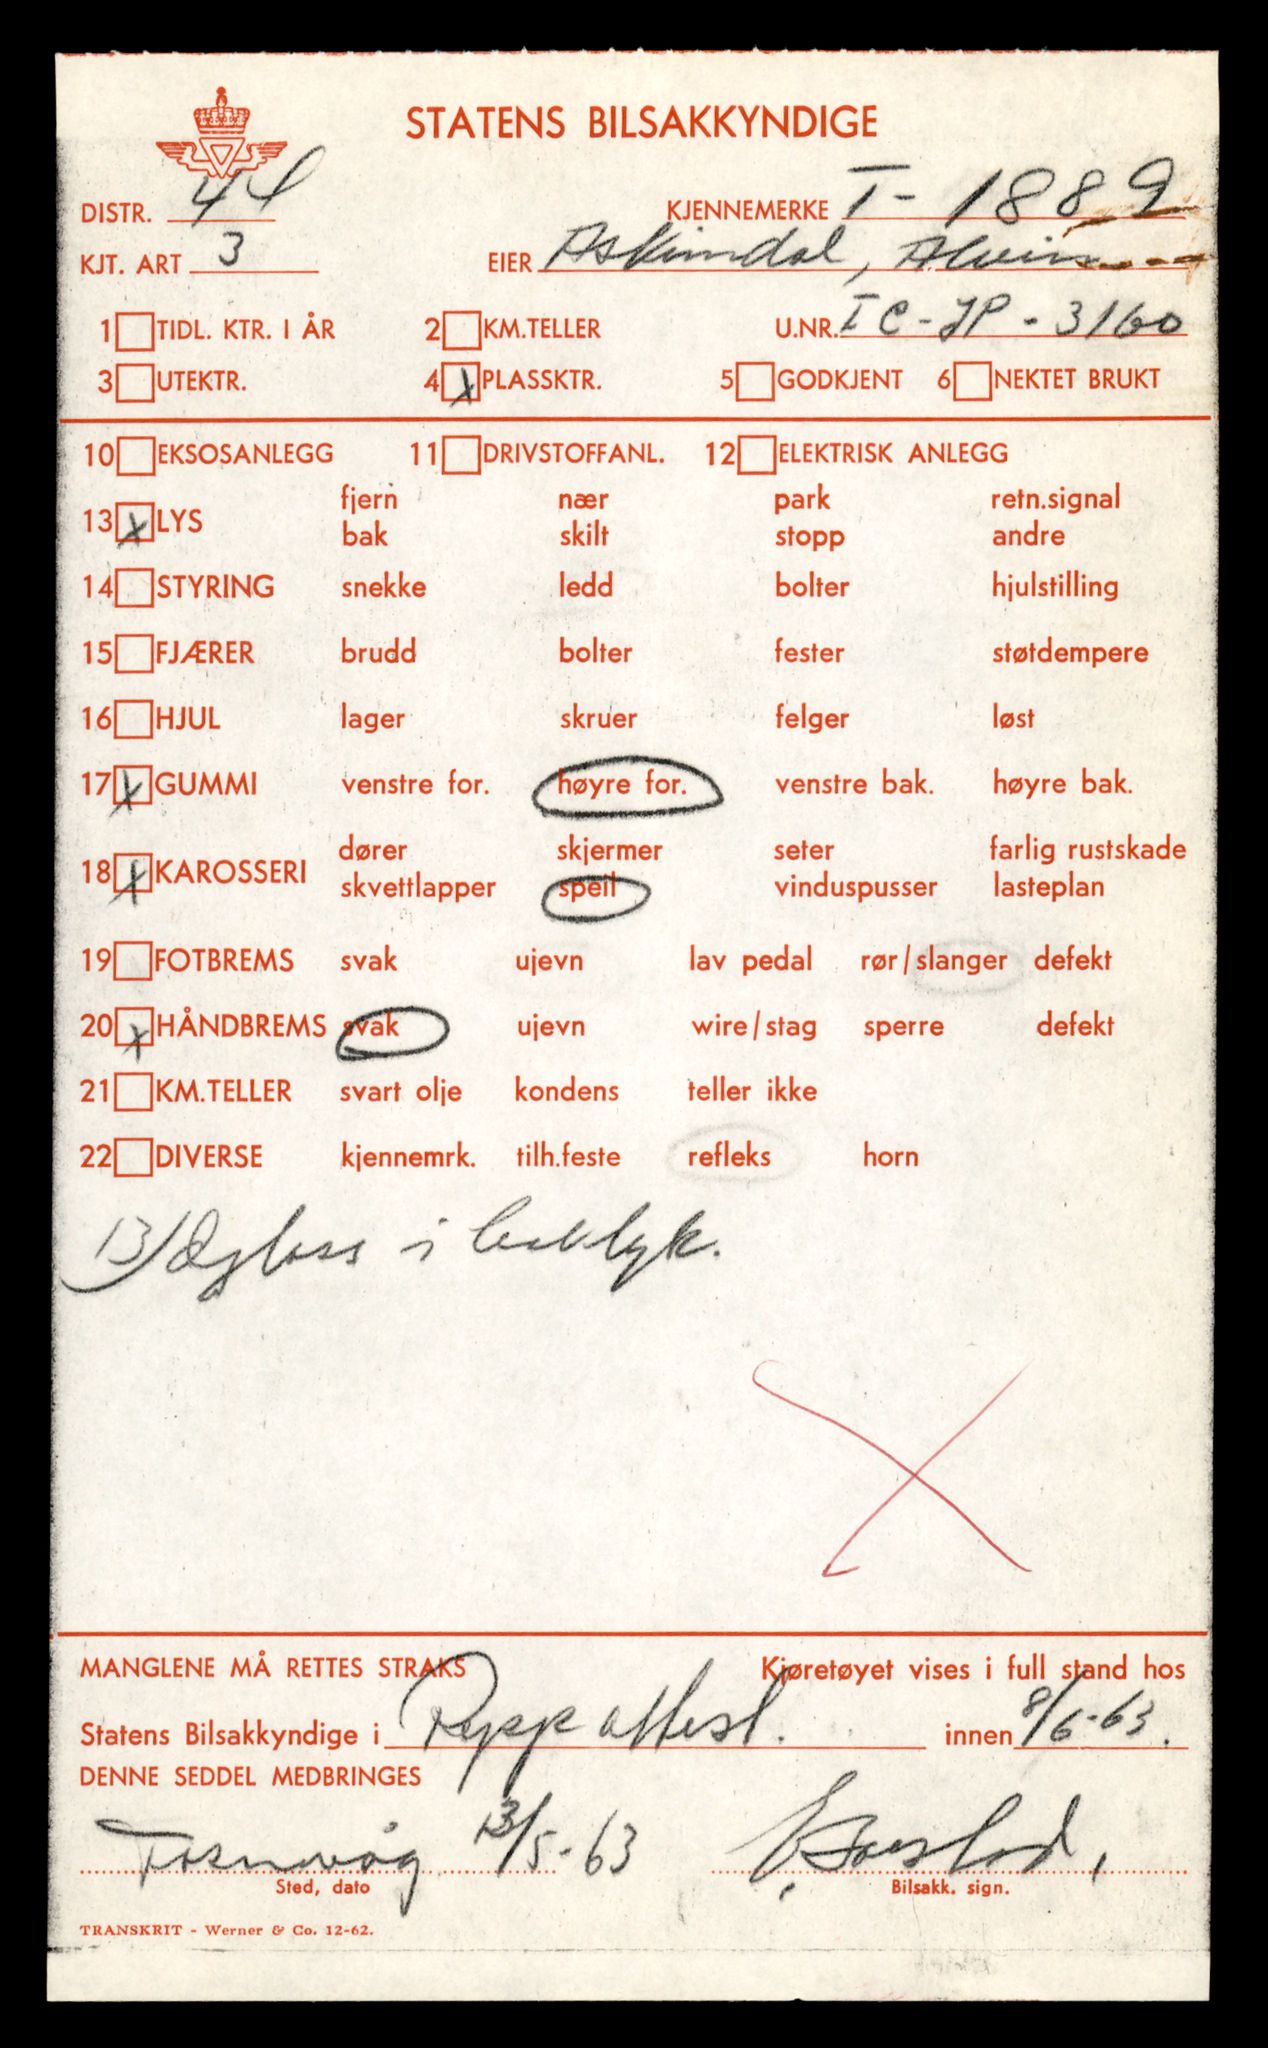 STATENS BILSAKKYNDIGE
DISTR. 44 KJENNEMERKE T- 1889
KJT. ART 3 EIER Askimdal, Alvin
1 TIDL. KTR. I ÅR 2 KM.TELLER U.NR. IC-JP-3160
3 UTEKTR. 4 X PLASSKTR. 5 GODKJENT 6 NEKTET BRUKT
10 EKSOSANLEGG 11 DRIVSTOFFANL. 12 ELEKTRISK ANLEGG
fjern nær park retn.signal
13 X LYS
bak skilt stopp andre
14 STYRING snekke ledd bolter hjulstilling
15 FJÆRER brudd bolter fester støtdempere
16 HJUL lager skruer felger løst
17 X GUMMI venstre for. høyre for. venstre bak. høyre bak.
dører skjermer seter farlig rustskade
18 X KAROSSERI
skvettlapper speil vinduspusser lasteplan
19 FOTBREMS svak ujevn lav pedal rør/slanger defekt
20 X HÅNDBREMS svak ujevn wire/stag sperre defekt
21 KM.TELLER svart olje kondens teller ikke
22 DIVERSE kjennemrk. tilh.feste refleks horn
13) glass i baklyk.
MANGLENE MÅ RETTES STRAKS Kjøretøyet vises i full stand hos
Statens Bilsakkyndige i attest. innen 8/6-63.
DENNE SEDDEL MEDBRINGES
Fosnavåg 13/5-63
Sted, dato Bilsakk. sign.
TRANSKRIT - Werner & Co. 12-62.